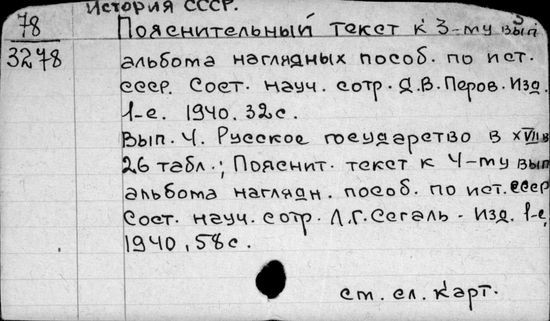 История СССР.
78
3278
Пояснительный текст к 3-му вып
альбома наглядных пособ. по ист.
СССР. Сост. науч. сотр. Д.В. Перов. Изд.
1-е. 1940. 32с.
Вып. 4. Русское государство в XVII в
26 табл.; Пояснит. текст к 4-му вып
альбома наглядн. пособ. по ист. СССР
Сост. науч. сотр. Л.Г. Сегаль - Изд. 1-е,
1940, 58с.
см. сл. карт.